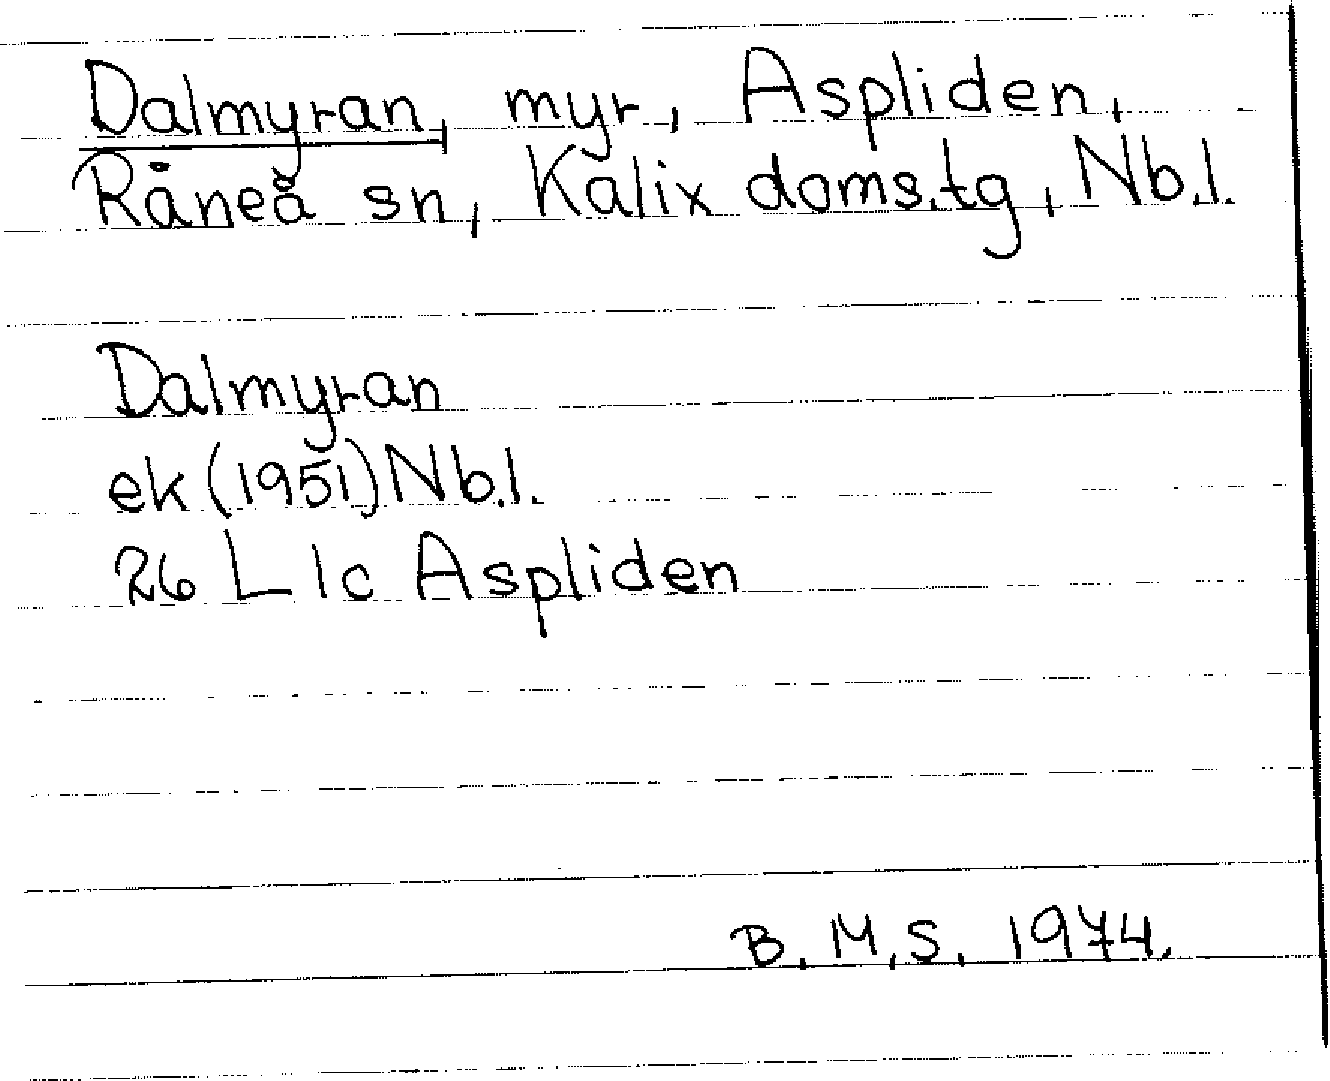 Dalmyran, myr, Aspliden,
Råneå sn, Kalix doms.tg, Nb.l.
Dalmyran
ek (1951) Nb.l.
26 L 1c Aspliden
B.M.S. 1974.